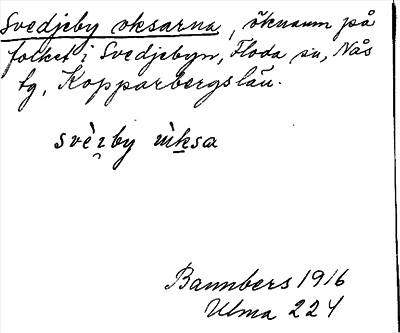 Svedjeby oksarna, öknamn på
folket i Svedjebyn, Floda sn, Nås
tg, Kopparbergs län.
svèzby ùksa
Bannbers 1916
Ulma 224